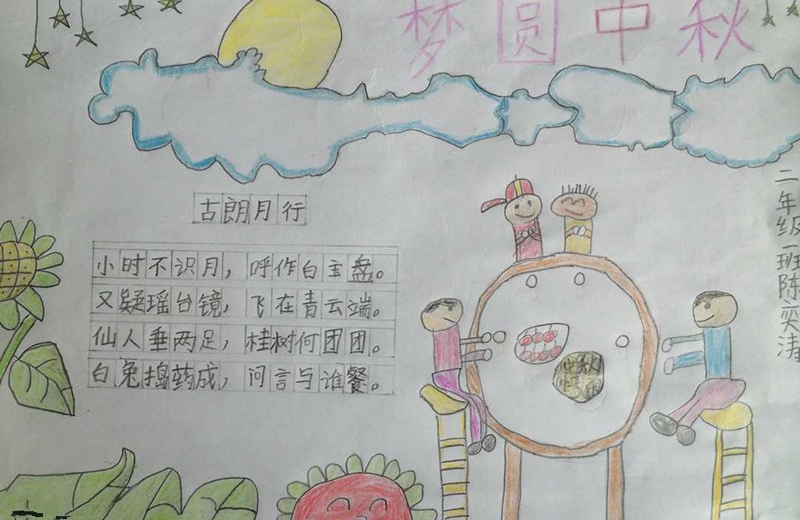 梦圆中秋
古朗月行
小时不识月，呼作白玉盘。
又疑瑶台镜，飞在青云端。
仙人垂两足，桂树何团团。
白兔捣药成，问言与谁餐。
二年级一班陈奕涛
中秋